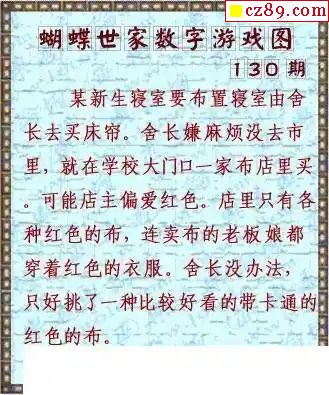 cz89.com
蝴蝶世家数字游戏图
130 期
某新生寝室要布置寝室由舍
长去买床帘。舍长嫌麻烦没去市
里，就在学校大门口一家布店里买
。可能店主偏爱红色。店里只有各
种红色的布，连卖布的老板娘都
穿着红色的衣服。舍长没办法，
只好挑了一种比较好看的带卡通的
红色的布。